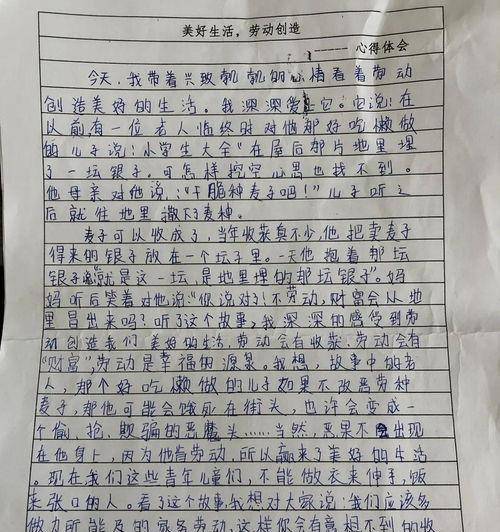 美好生活，劳动创造
------ 心得体会
今天，我带着兴致勃勃的心情看着劳动
创造美好的生活。我深深爱上它。它说：在
以前有一位老人临终时对他那好吃懒做
的儿子说：小学生大全"在屋后那片地里埋
了一坛银子。可怎样挖空心思也找不到。
他母亲对他说："干脆种麦子吧！"儿子听之
后就往地里撒下麦种。
麦子可以收成了，当年收获真不少，他把卖麦子
得来的银子放在一个坛子里。一天他抱着那坛
银子就是这一坛，是地里埋的那坛银子"。妈
妈听后笑着对他说"你说对了！不劳动，财富会从地
里冒出来吗？听了这个故事，我深深的感受到劳
动创造我们美好的生活，劳动会有收获，劳动会有
"财富"，劳动是幸福的源泉。我想，故事中的老
人，那个好吃懒做的儿子如果不改恶劳种
麦子，那他可能会饿死在街头，也许会变成一
个偷、抢、欺骗的恶魔头……当然，恶果不会出现
在他身上，因为他肯劳动，所以赢来了美好的生活
。现在我们这些青年儿童们，不能做衣来伸手，饭
来张口的人。看了这个故事，我想对大家说：我们应该多
做力所能及的家务劳动，这样你会有意想不到的收